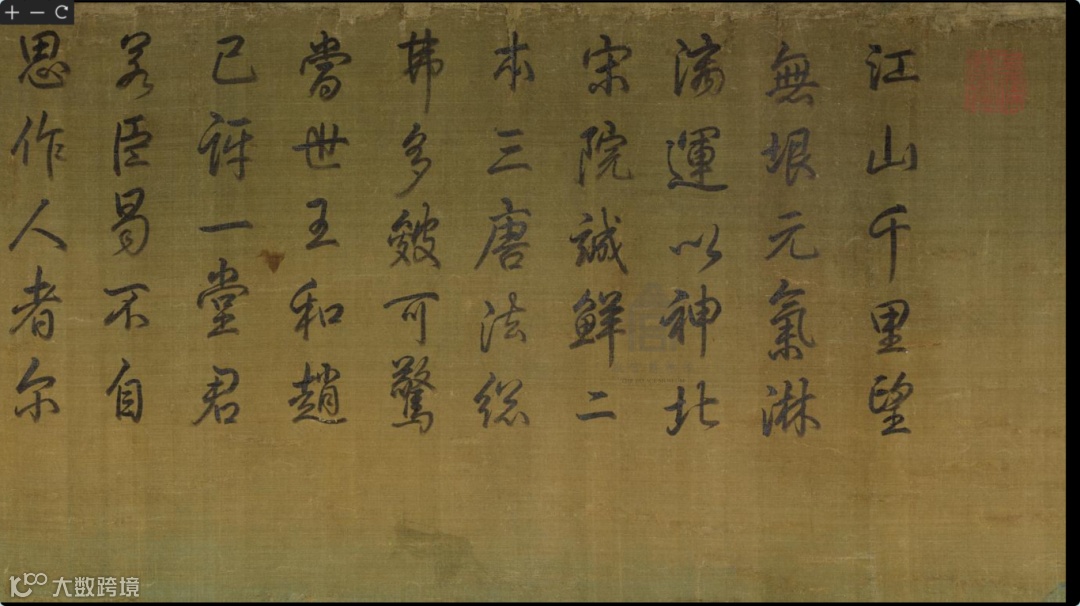 江山千里望
無垠元氣淋
漓運以神北
宋院誠鮮二
本三唐法總
弗多皴可驚
當世王和趙
已訝一堂君
若臣曷不自
思作人者尔
大数跨境